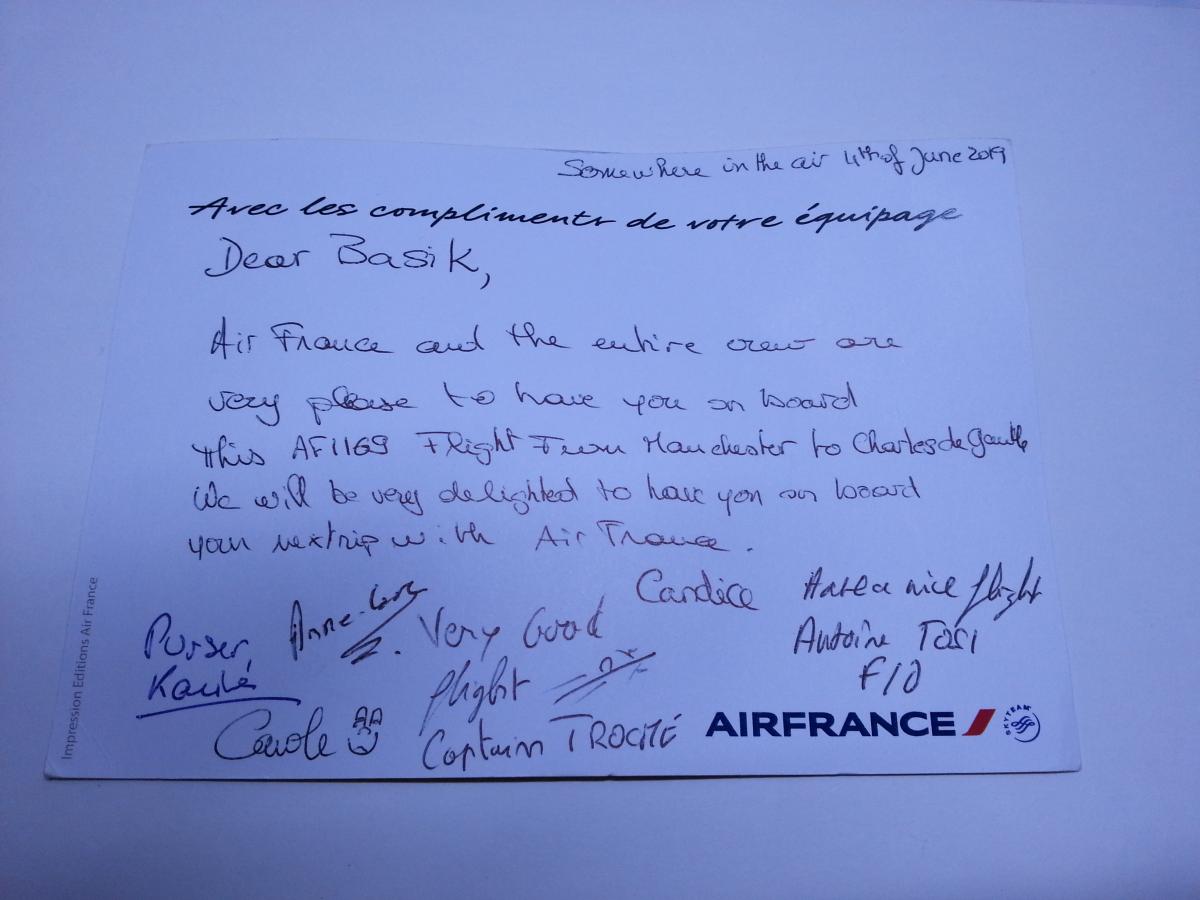 Somewhere in the air 4th of June 2019
Avec les compliments de votre équipage
Dear Basik,
Air France and the entire crew are
very please to have you on board
this AF1169 Flight From Manchester to Charles de Gaulle
We will be very delighted to have you on board
your nextrip with Air France.
Candice
Have a nice flight
Antoine TOSI
F/O
Purser,
Anne-
Very Good
flight
Captain TROCMÉ
Carole
Impression Editions Air France
AIRFRANCE
SKYTEAM